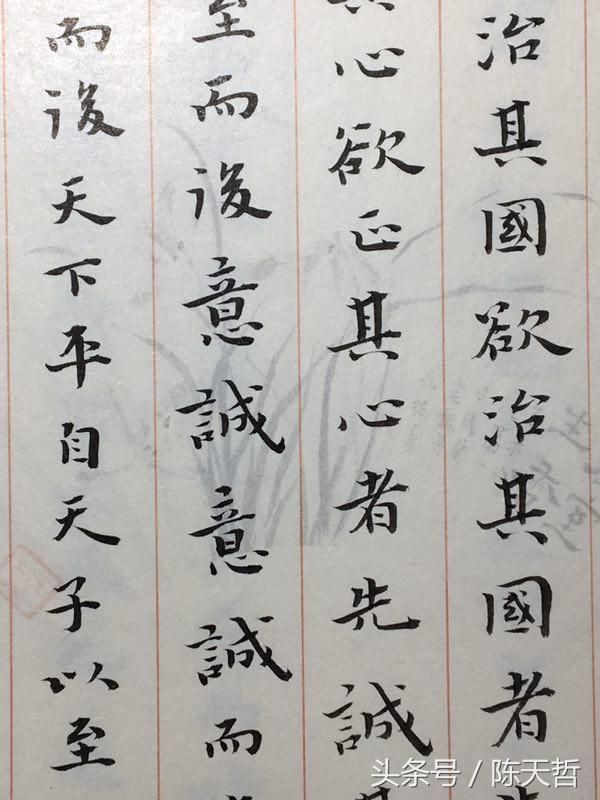 治其國欲治其國者
其心欲正其心者先誠
至而後意誠意誠而
而後天下平自天子以至
头条号／陈天哲